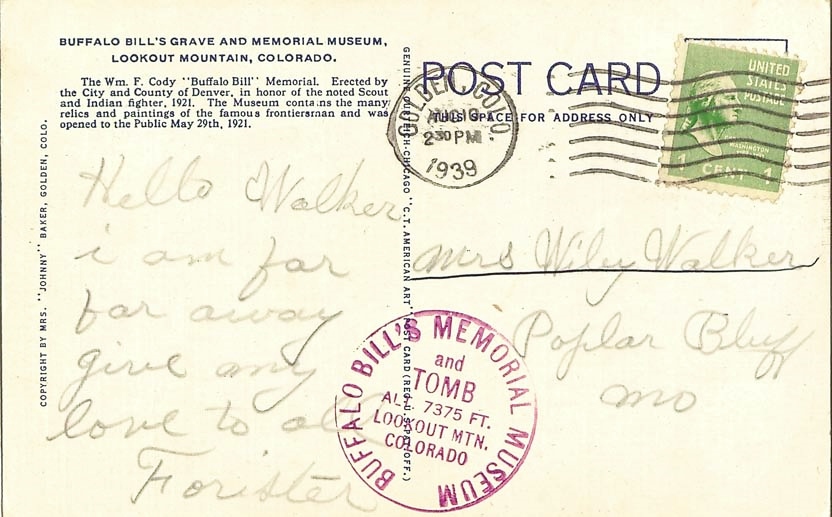 BUFFALO BILL'S GRAVE AND MEMORIAL MUSEUM,
LOOKOUT MOUNTAIN, COLORADO.
The Wm. F. Cody "Buffalo Bill" Memorial. Erected by
the City and County of Denver, in honor of the noted Scout
and Indian fighter, 1921. The Museum contains the many
relics and paintings of the famous frontiersman and was
opened to the Public May 29th, 1921.
COPYRIGHT BY MRS. "JOHNNY" BAKER, GOLDEN, COLO.
Hello Walker
i am far
far away
give any
love to all
Forister
GENUINE CURTEICH-CHICAGO "C.T. AMERICAN ART" POST CARD (REG. U.S. PAT. OFF.)
POST CARD
THIS SPACE FOR ADDRESS ONLY
GOLDEN, COLO
AUG 19
2 30 PM
1939
UNITED
STATES
POSTAGE
WASHINGTON
1 CENT 1
Mrs Wiley Walker
Poplar Bluff
Mo
BUFFALO BILL'S MEMORIAL MUSEUM
and
TOMB
ALT. 7375 FT.
LOOKOUT MTN.
COLORADO